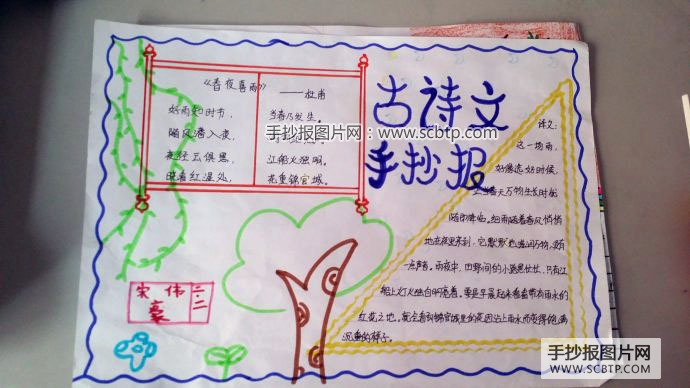 古诗文
手抄报
《春夜喜雨》
——杜甫
好雨知时节,
当春乃发生。
随风潜入夜,
手抄报图片网:www.scbtp.com
夜径云俱黑,
江船火独明。
晓看红湿处,
花重锦官城。
译文:
这一场雨,
好像选好时候,
正当春天万物生长时就
随即降临。细雨随着春风悄悄
地在夜里来到,它默默地滋润万物,没有
一点声音。雨夜中,田野间的小路黑茫茫,只有江
船上灯火独自明亮着。要是早晨起来看看带有雨水的
红花之地。就会看到锦官城里的花因沾上雨水而变得饱满
沉重的样子。
宋伟豪
二.二
手抄报图片网
WWW.SCBTP.COM